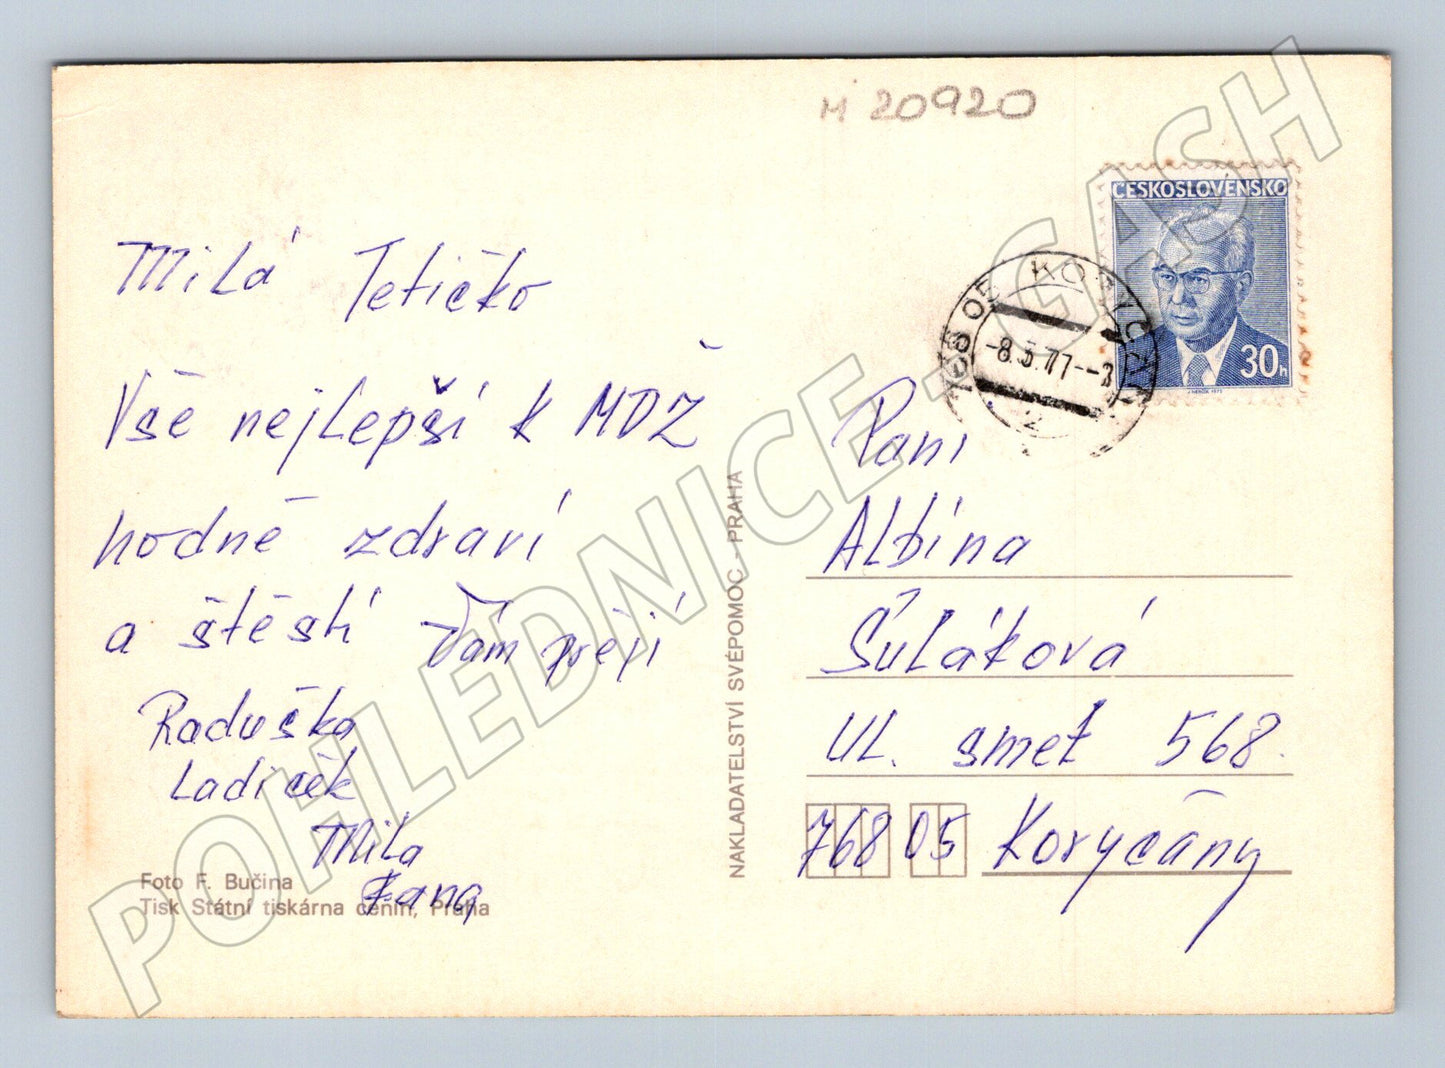 M 20920
ČESKOSLOVENSKO
30h
768 05 KORYČANY
-8.3.77--
2
Milá Tetičko
Vše nejlepší k MDŽ
hodně zdraví
a štěstí Vám přejí
Raduška
Ladiček
Mila
Jana
Foto F. Bučina
Tisk Státní tiskárna cenin, Praha
NAKLADATELSTVÍ SVÉPOMOC - PRAHA
Paní
Albína
Šuláková
Ul. smet 568.
768 05 Koryčany
POHLEDNICE - GASH